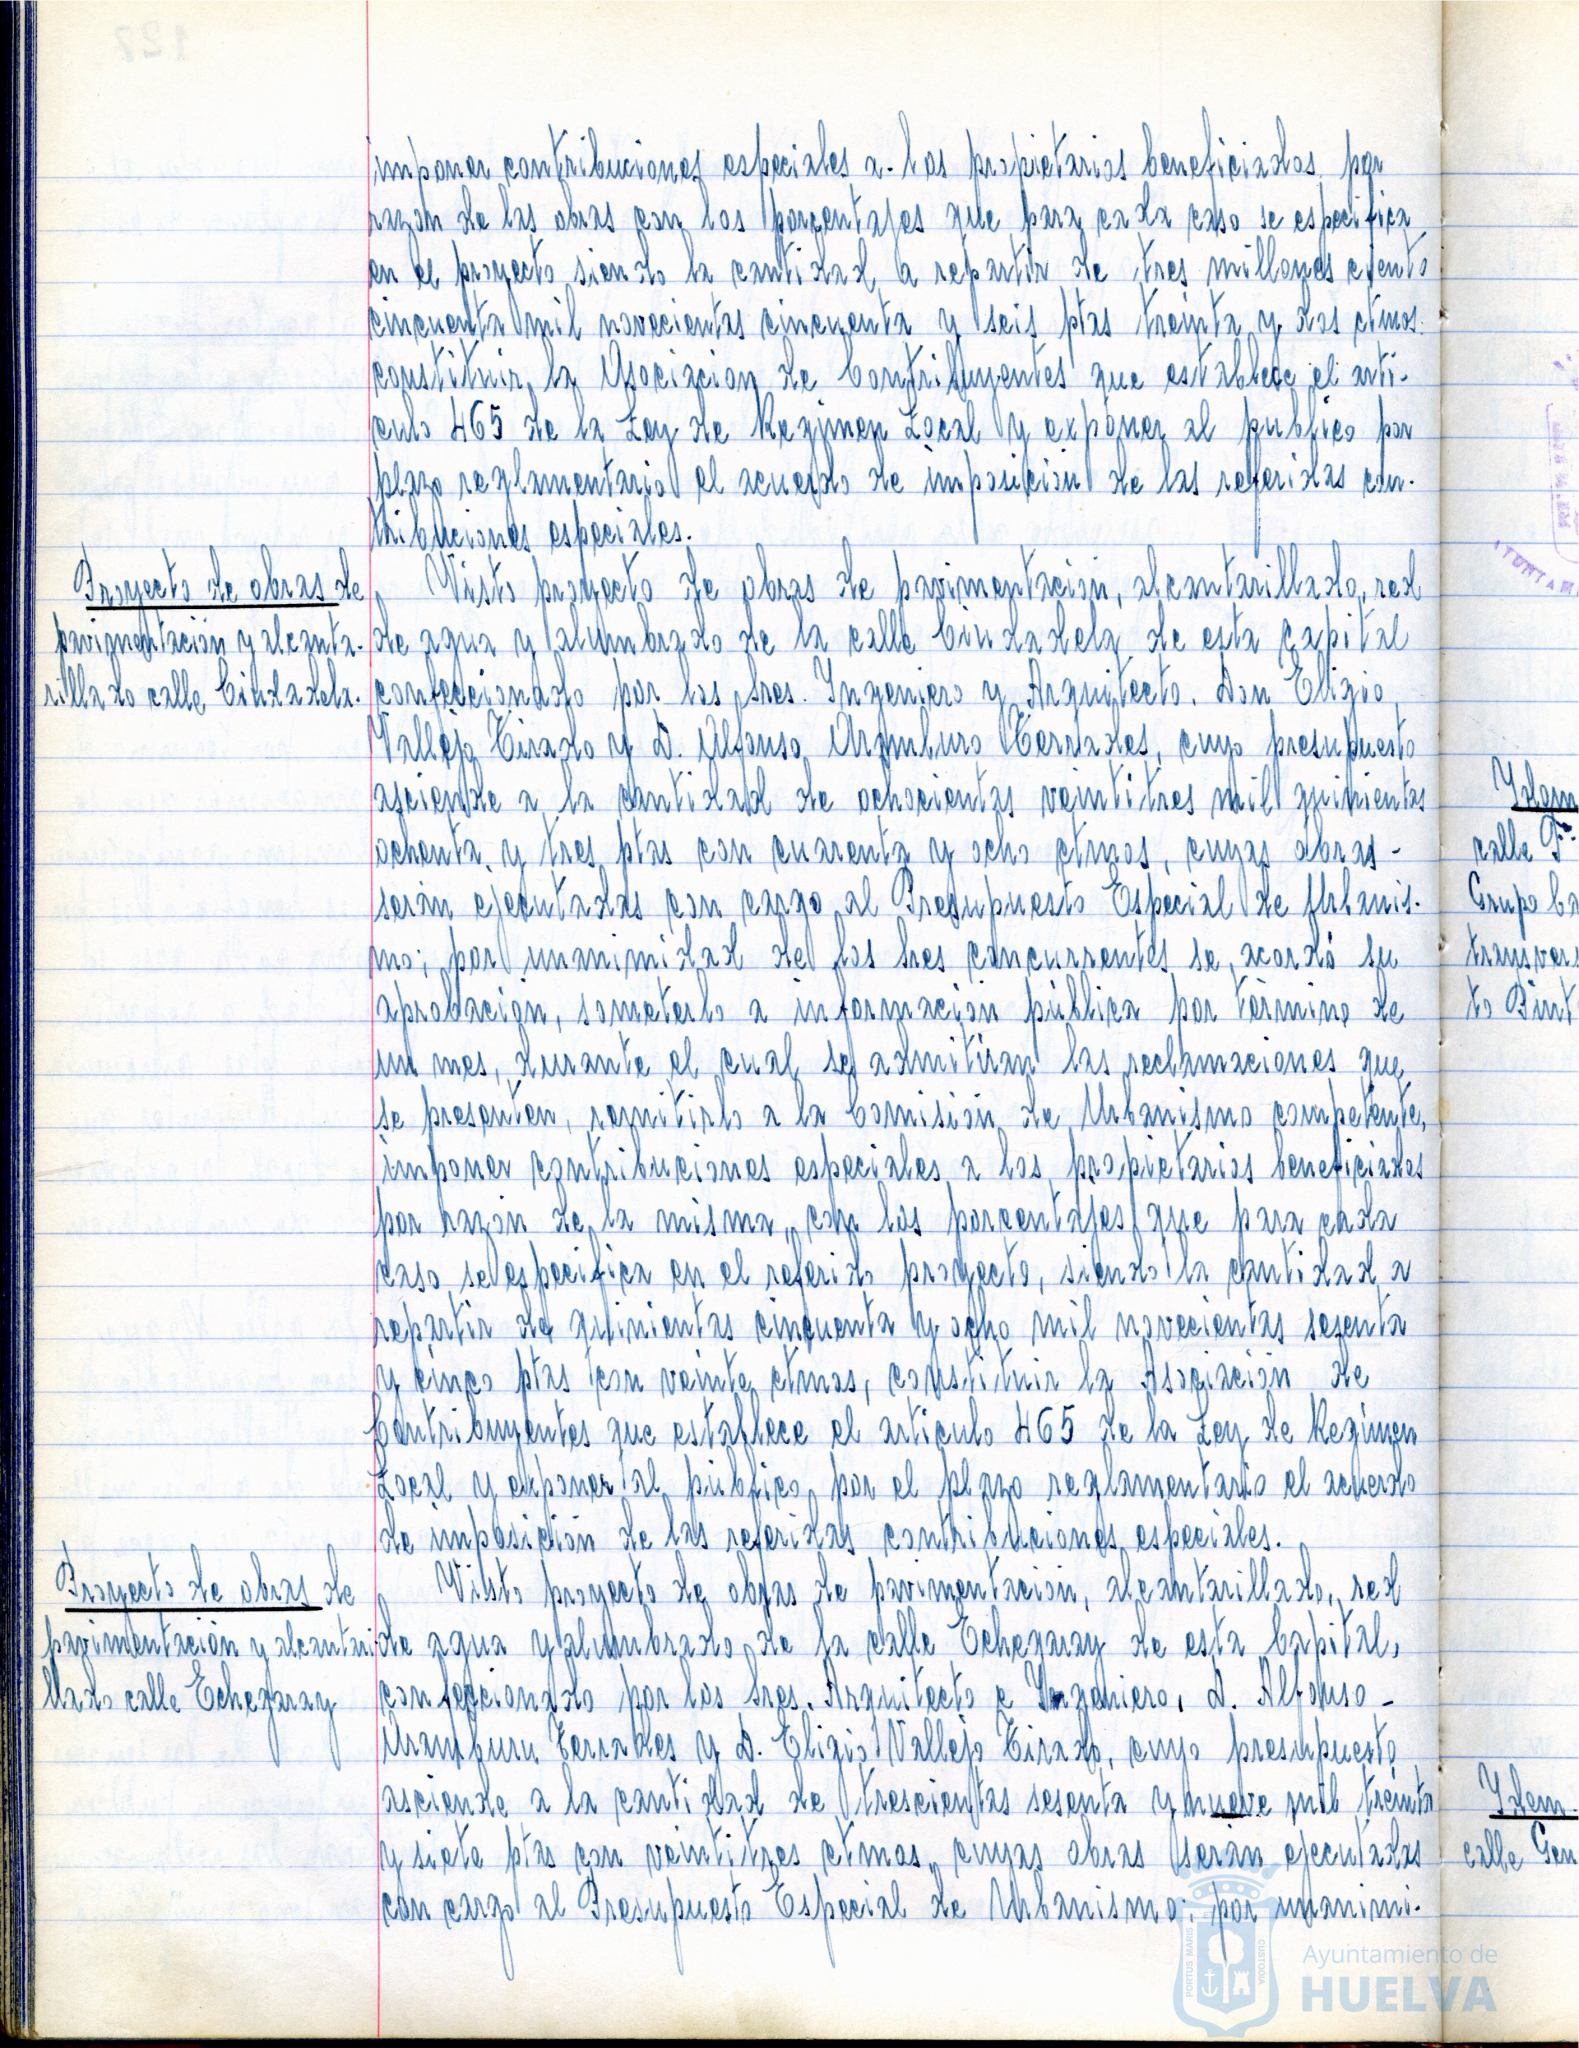 imponer contribuciones especiales a los propietarios beneficiados por
razón de las obras con los porcentajes que para cada caso se especifica
en el proyecto siendo la cantidad a repartir de tres millones ciento
cincuenta mil novecientas cincuenta y seis ptas treinta y dos ctmos.
constituir la Asociacion de Contribuyentes que establece el arti-
culo 465 de la Ley de Regimen Local y exponer al publico por
plazo reglamentario el acuerdo de imposición de las referidas con-
tribuciones especiales.
Proyecto de obras de
pavimentación y alcanta-
rillado calle Ciudadela.
Visto proyecto de obras de pavimentacion, alcantarillado, red
de agua y alumbrado de la calle Ciudadela de esta capital
confeccionado por los Sres. Ingeniero y Arquitecto. Don Eligio
Vallejo Tirado y D. Alfonso Aramburo Terrades, cuyo presupuesto
asciende a la cantidad de ochocientas veintitres mil quinientas
ochenta y tres ptas con cuarenta y ocho ctmos, cuyas obras -
serán ejecutadas con cargo al Presupuesto Especial de Urbanis-
mo; por unanimidad de los Sres concurrentes se acordó su
aprobación, someterlo a información pública por término de
un mes, durante el cual se admitiran las reclamaciones que
se presenten, remitirlo a la Comisión de Urbanismo competente,
imponer contribuciones especiales a los propietarios beneficiados
por razón de la misma, con los porcentajes que para cada
caso se especifica en el referido proyecto, siendo la cantidad a
repartir de quinientas cincuenta y ocho mil novecientas sesenta
y cinco ptas con veinte ctmos, constituir la Asociación de
Contribuyentes que establece el articulo 465 de la Ley de Regimen
Local y exponer al público por el plazo reglamentario el acuerdo
de imposición de las referidas contribuciones especiales.
Proyecto de obras de
pavimentación y alcantari
llado calle Echegaray
Visto proyecto de obras de pavimentacion, alcantarillado, red
de agua y alumbrado de la calle Echegaray de esta Capital,
confeccionado por los Sres. Arquitecto e Ingeniero, D. Alfonso -
Aramburu Terrades y D. Eligio Vallejo Tirado, cuyo presupuesto
asciende a la cantidad de trescientas sesenta y nueve mil treinta
y siete ptas con veintitres ctmos, cuyas obras serán ejecutadas
con cargo al Presupuesto Especial de Urbanismo; por unanimi-
Idem
calle
Grupo
to
Idem.
calle
PORTUS MARIS
CUSTODIA
Ayuntamiento de
HUELVA